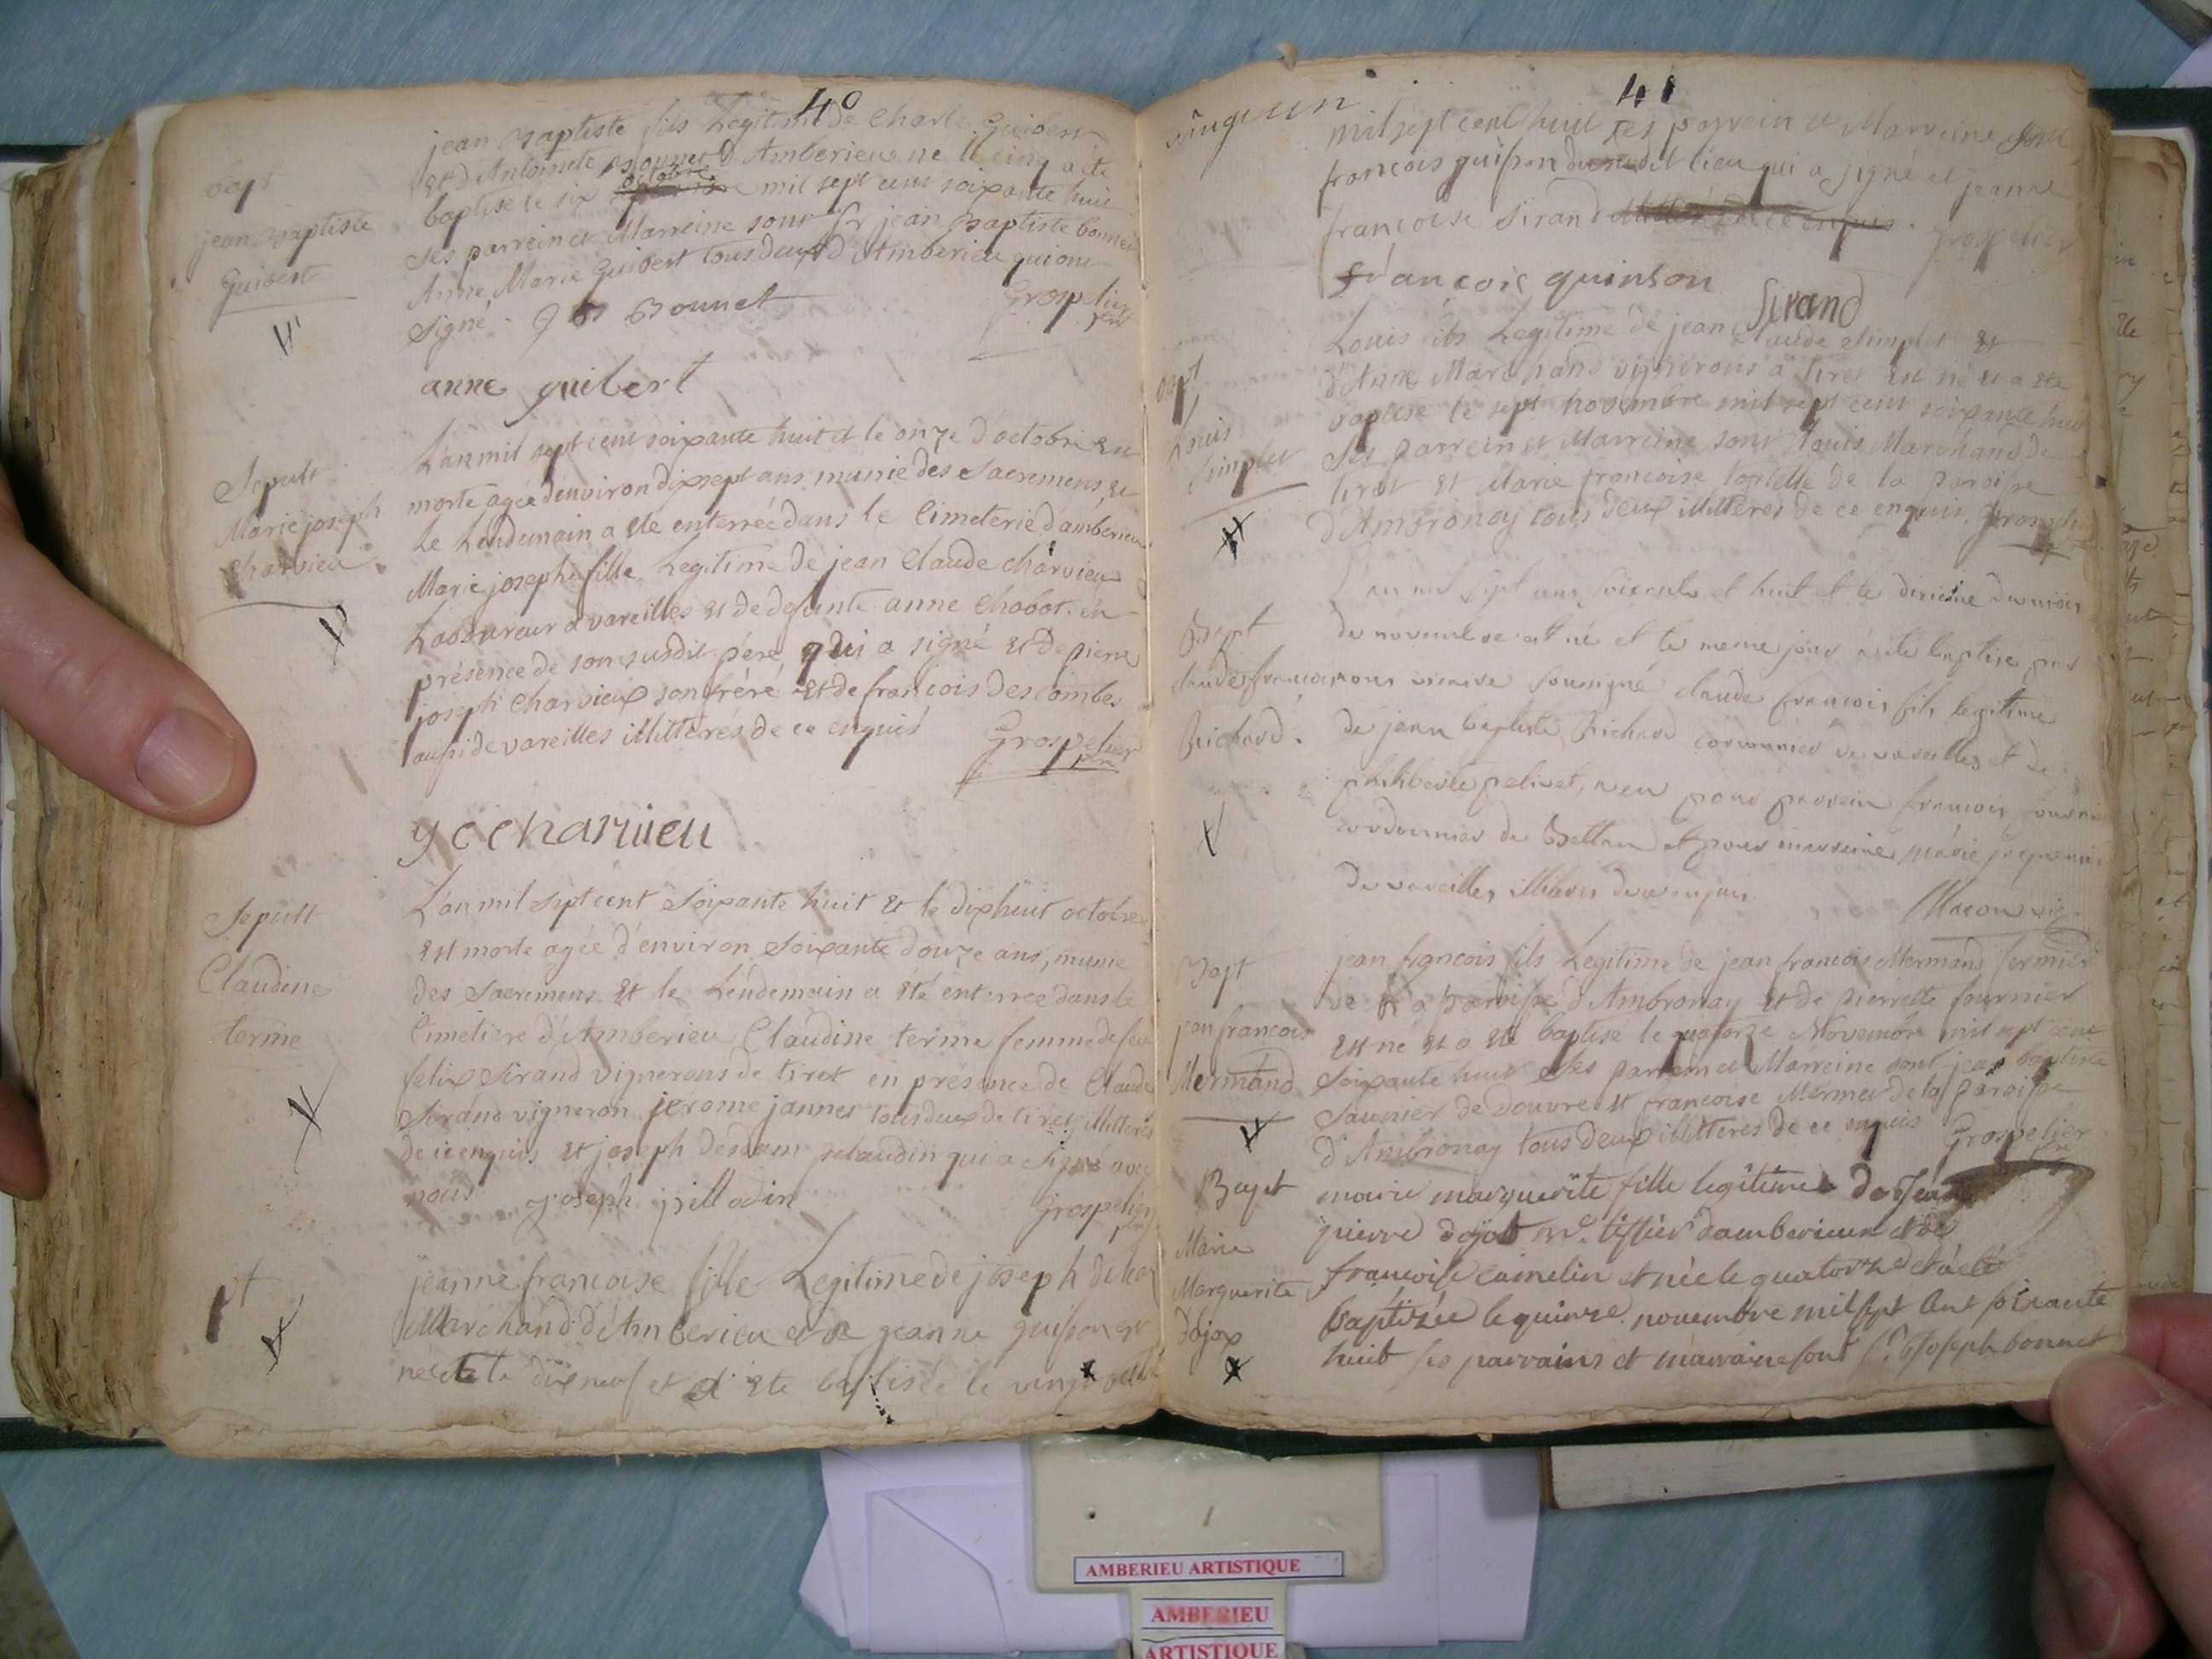 40
bapt
jean Baptiste
Guibert
jean Baptiste fils Legitime de Charle Guibert
Et d'Antoinete Bonnet d'Amberieu ne le cinq a ete
baptise le six octobre mil sept cent soixante huit
ses parrein et Marreine sont Sr jean Baptiste bonnet
Anne Marie Guibert tous deux d'Amberieu qui ont
signé. J B Bonnet Grospelier
anne guibert
Sepult
Marie joseph
Charvieu
L'an mil sept cent soixante huit et le onze d'octobre Est
morte agée d'environ dixsept ans, munie des Sacremens, et
Le Lendemain a été enterrée dans le Cimeterie d'amberieu
Marie josephe fille Legitime de jean Claude charvieu
Laboureur a vareilles Et de defunte anne Chabot. en
présence de son susdit pere qui a signé Et de pierre
joseph Charvieux son frére Et de francois Descombes
aussi de vareilles illitterés de ce enquis Grospelier
J C Charvieu
Sepult
Claudine
terme
L'an mil sept cent soixante huit Et le dixhuit octobre
Est morte agée d'environ soixante douze ans, munie
des Sacremens Et le Lendemain a été enterrée dans le
Cimetiere d'Amberieu Claudine terme femme de feu
felix Sirand vignerons de tiret en présence de Claude
Sirand vigneron jerome jannet tous deux de tiret illitterés
de ce enquis Et joseph pelaudin qui a signé avec
nous joseph pillodin Grospelier
jeanne francoise fille Legitime de joseph
Marchand d'Amberieu et de jeanne guison est
née le dixneuf et a été baptisée le vingt octobre
41
mil sept cent huit ses parrein et Marreine sont
francois guison du dit lieu qui a signé et jeanne
francoise Sirand Grospelier
francois quinson Sirand
bapt
Louis
Simplet
Louis fils Legitime de jean Claude Simplet Et
d'Anne Marchand vignerons a tiret Est né Et a ete
baptise le sept novembre mil sept cent soixante huit
Ses parrein et Marreine sont Louis Marchand de
tiret Et Marie francoise tortelle de la paroisse
d'Ambronay tous deux illitterés de ce enquis. Grospelier
Bapt
claude francois
Richard.
L'an mil sept cent soixante et huit et le dixième du mois
de novembre est né et le meme jour a été baptisé par
nous vicaire soussigné claude francois fils legitime
de jean baptiste Richard cordonnier de vareilles et de
philiberte pelivet, a eu pour parrein francois
cordonnier de Bettan et pour marreine marie
de vareilles illiteres de ce enquis.
Bapt
jean francois
Mermand
jean francois fils Legitime de jean francois Mermand fermier
de la paroisse d'Ambronay Et de pierrette fournier
Est né Et a été baptisé le quatorze Novembre mil sept cent
soixante huit Ses parrein et Marreine sont jean baptiste
Saunier de Douvre Et francoise Mermet de la paroisse
d'Ambronay tous deux illitteres de ce enquis Grospelier
Bapt
Marie
Marguerite
dojop
marie marguerite fille legitime de Jean
pierre dojot md. tissier damberieux et de
francoise camelin et née le quatorze et a été
baptisée le quinze novembre mil sept cent soixante
huit ses parrains et marraine sont Sr. Joseph bonnet
AMBERIEU ARTISTIQUE
AMBERIEU
ARTISTIQUE